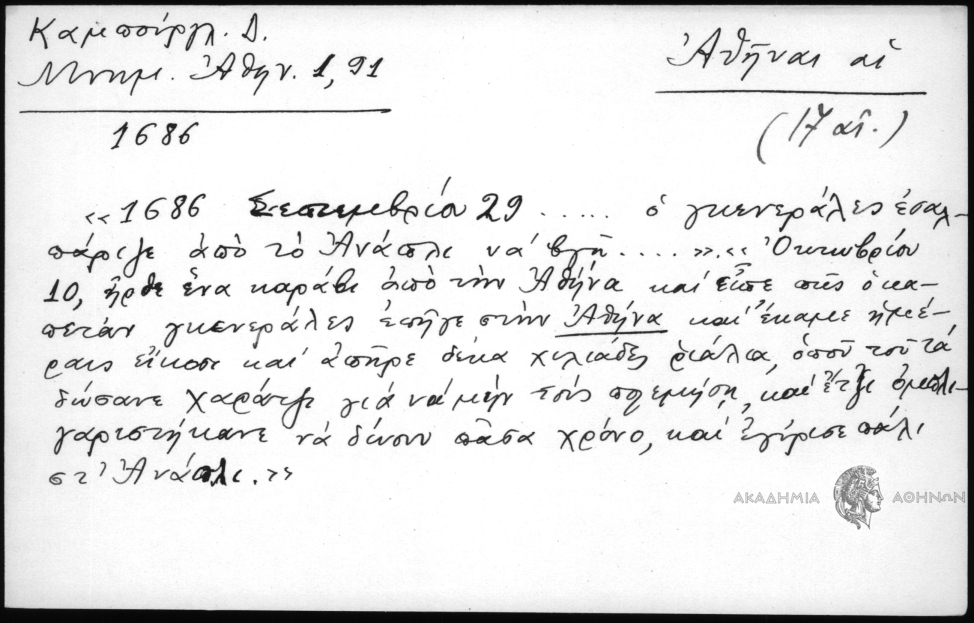 Καμπούργλ. Δ.
Μνημ. Ἀθην. 1, 91
1686
Ἀθῆναι αἱ
(17 αἰ.)
«1686 Σεπτεμβρίου 29 ..... ὁ γκενεράλες ἐσαλ-
πάριζε ἀπὸ τὸ Ἀνάπλι νά βγῆ ....». «Ὀκτωβρίου
10, ἦρθε ἕνα καράβι ἀπὸ τὴν Ἀθήνα καὶ εἶπε πῶς ὁ κα-
πετάν γκενεράλες ἐπῆγε στὴν Ἀθήνα καὶ ἔκαμε ἡμέ-
ραις εἴκοσι καὶ ἀπῆρε δέκα χιλιάδες ῥιάλια, ὁποῦ τοῦ τά
δώσανε χαράτζι γιά νά μὴν τούς πρεμήσῃ, καὶ ἔτζι ὀμπλι-
γαριστήκανε νά δίνουν πᾶσα χρόνο, καὶ ἐγύρισε πάλι
στ' Ἀνάπλι.»
ΑΚΑΔΗΜΙΑ ΑΘΗΝΩΝ